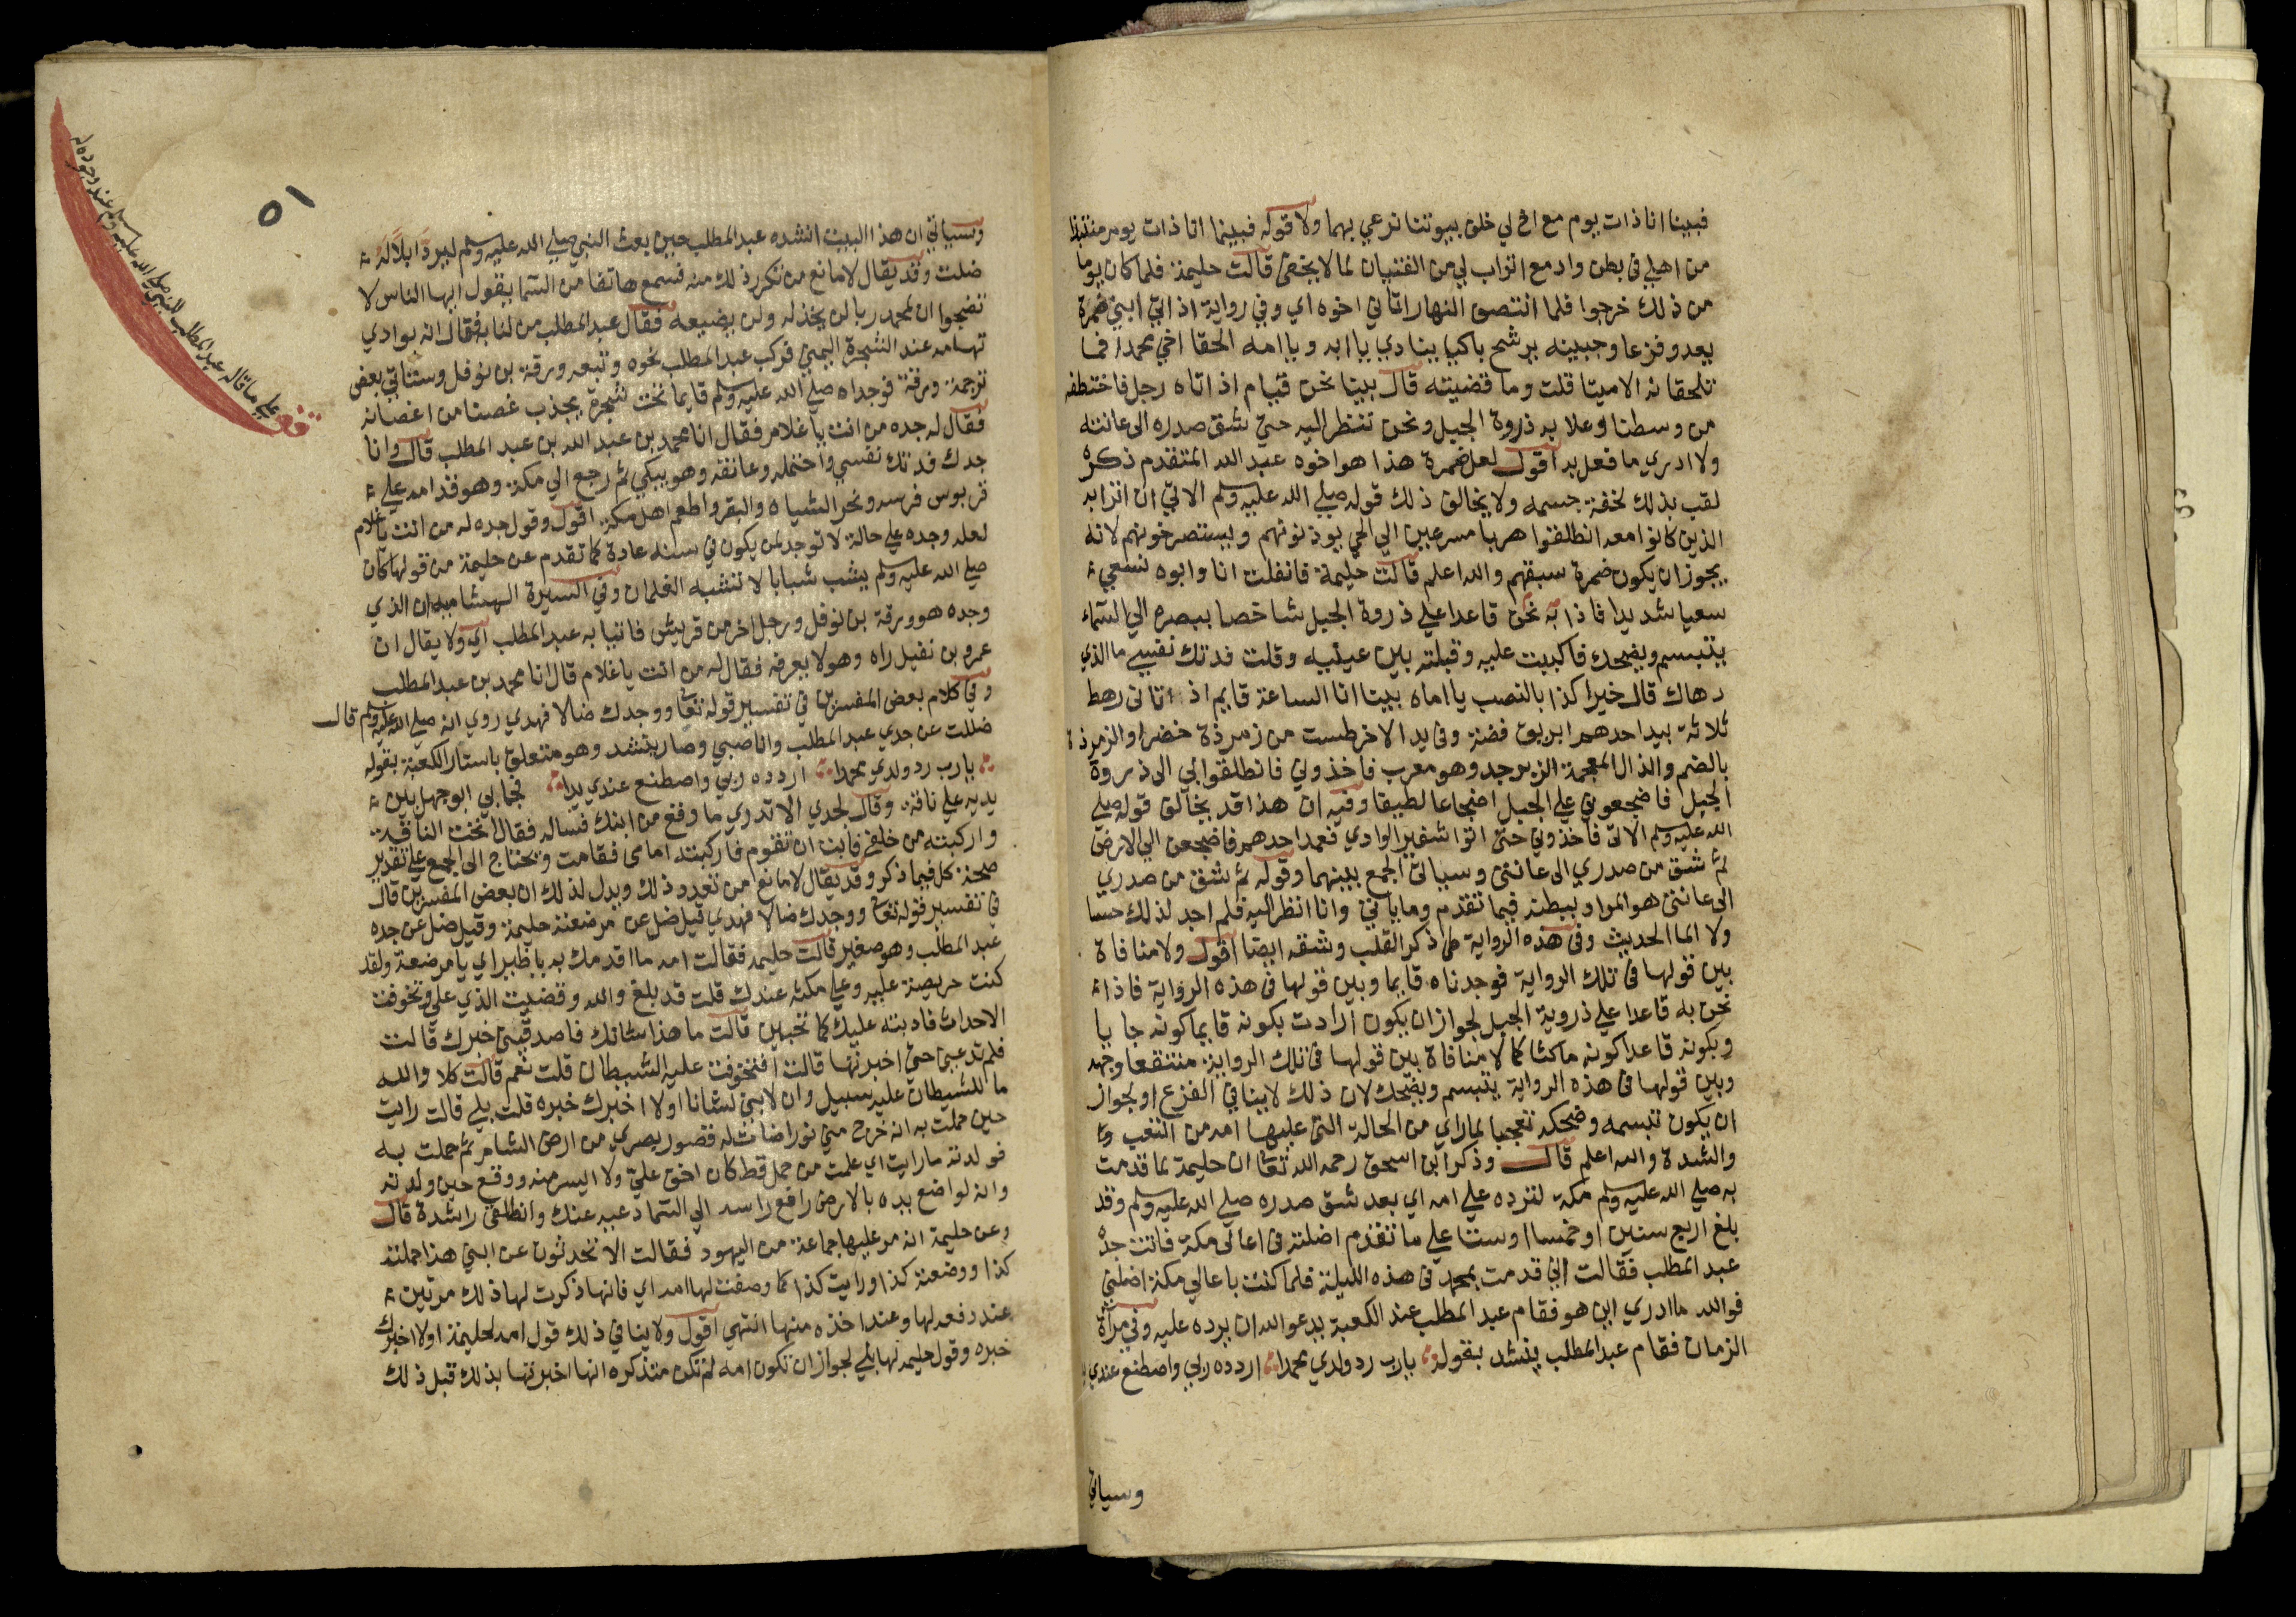 فبينا انا ذات يوم مع اخ لي خلف بيوتنا نرعي بهما ولا قوله فبينما انا ذات يوم منتبذا
من اهلي في بطن واد مع اتراب لي من الفتيان لما لا يخفى قالت حليمة فلما كان يوما
من ذلك خرجوا فلما انتصف النهار اتاني اخوه اي وفي رواية اذ اتى ابني ضمرة
يعدو فزعا وجبينه يرشح باكيا ينادي يا ابه ويا امه الحقا اخي محمدا فما
تلحقانه الا ميتا قلت وما قضيته قال بينا نحن قيام اذ اتاه رجل فاختطفه
من وسطنا وعلا به ذروة الجبل ونحن ننظر اليه حتى شق صدره الى عانته
ولا ادري ما فعل به اقول لعل ضمرة هذا هو اخوه عبد الله المتقدم ذكره
لقب بذلك لخفة جسمه ولا يخالف ذلك قوله صلى الله عليه وسلم الاتي ان اترابه
الذين كانوا معه انطلقوا هربا مسرعين الى الحي يوذنونهم ويستصرخونهم لانه
يجوز ان يكون ضمرة سبقهم والله اعلم قالت حليمة فانطلقت انا وابوه نسعى
سعيا شديدا فاذا به نحن قاعدا على ذروة الجبل شاخصا ببصره الى السماء
يتبسم ويضحك فاكببت عليه وقبلته بين عينيه وقلت فدتك نفسي ما الذي
دهاك قال خيرا كذا بالنصب يا اماه بينا انا الساعة قايم اذ اتاني رهط
ثلاثة بيد احدهم ابريق فضة وفي يد الاخر طست من زمرذة خضرا والزمرذة
بالضم والذال المعجمة الزبرجد وهو معرب فاخذوني فانطلقوا بي الى ذروة
الجبل فاضجعوني على الجبل اضجاعا لطيفا وفيه ان هذا قد يخالف قوله صلى
الله عليه وسلم الاتى فاخذوني حتى اتوا شفير الوادي فعمد احدهم فاضجعني الى الارض
ثم شق من صدري الى عانتي وسياتى الجمع بينهما وقوله ثم شق من صدري
الى عانتي هو المراد ببطنه فيما تقدم وما ياتي وانا انظر اليه فلم اجد لذلك حسا
ولا الما الحديث وفي هذه الرواية طي ذكر القلب وشقه ايضا اقول ولا منافاة
بين قولها في تلك الرواية فوجدناه قايما وبين قولها في هذه الرواية فاذا
نحن به قاعدا على ذروية الجبل لجواز ان يكون ارادت بكونه قايما كونه جايا
وبكونه قاعدا كونه ماكثا كما لا منافاة بين قولها في تلك الرواية منتقعا وجهه
وبين قولها في هذه الرواية يتبسم ويضحك لان ذلك لا ينافي الفزع او لجواز
ان يكون تبسمه وضحكه تعجبا لما راي من الحالة التي عليها امه من التعب
والشدة والله اعلم قال وذكر ابن اسحق رحمه الله تعا ان حليمة لما قدمت
به صلى الله عليه وسلم مكة لترده على امه اي بعد شق صدره صلى الله عليه وسلم وقد
بلغ اربع سنين او خمسا او ستا على ما تقدم اضلته في اعالى مكة فاتت جده
عبد المطلب فقالت اني قدمت بمحمد في هذه الليلة فلما كنت باعالي مكة اضلني
فوالله ما ادري اين هو فقام عبد المطلب عند الكعبة يدعو الله ان يرده عليه وفي مرآة
الزمان فقام عبد المطلب ينشد بقوله يا رب رد ولدي محمدا اردده ربي واصطنع عندي
وسياتي
٥١
وسياتي ان هذا البيت انشده عبد المطلب حين بعث النبي صلى الله عليه وسلم ليرد ابلا له
ضلت وقد يقال لا مانع من تكرر ذلك منه فسمع هاتفا من السما يقول ايها الناس لا
تضجوا ان لمحمد ربا لن يخذله ولن يضيعه فقال عبد المطلب من لنا به فقال انه بوادي
تهامه عند الشجرة اليمنى فركب عبد المطلب نحوه وتبعه ورقة بن نوفل وستاتي بعض
ترجمة ورقة فوجداه صلى الله عليه وسلم قايما تحت شجرة يجذب غصنا من اغصانه
فقال له جده من انت يا غلام فقال انا محمد بن عبد الله بن عبد المطلب قال وانا
جدك فدتك نفسي واحتمله وعانقه وهو يبكي ثم رجع الى مكة وهو قدامه على
قربوس فرسه ونحر الشياه والبقر واطعم اهل مكة اقول وقول جده له من انت يا غلام
لعله وجده على حالة لا توجد لمن يكون في سنه عادة كما تقدم عن حليمة من قولها كان
صلى الله عليه وسلم يشب شبابا لا تشبه الغلمان وفي السيرة الهشامية ان الذي
وجده هو ورقة بن نوفل ورجل اخر من قريش فاتيا به عبد المطلب اي ولا يقال ان
عمرو بن نفيل راه وهو لا يعرفه فقال له من انت يا غلام قال انا محمد بن عبد المطلب
وفي كلام بعض المفسرين في تفسير قوله تعا ووجدك ضالا فهدي روي انه صلى الله عليه وسلم قال
ضللت عن جدي عبد المطلب وانا صبي وصار ينشد وهو متعلق باستار الكعبة بقوله
يا رب رد ولدي محمدا اردده ربي واصطنع عندي يدا فجا بي ابو جهل بين
يديه على ناقة وقال لجدي الا تدري ما وقع من ابنك فساله فقال انخت الناقة
واركبته من خلفي فابت ان تقوم فاركبته امامى فقامت ويحتاج الى الجمع على تقدير
صحة كل فيما ذكر وقد يقال لا مانع من تعدد ذلك ويدل لذلك ان بعض المفسرين قال
في تفسير قوله تعا ووجدك ضالا فهدي قيل ضل عن مرضعته حليمة وقيل ضل عن جده
عبد المطلب وهو صغير قالت حليمه فقالت امه ما اقدمك به يا ظير اي يا مرضعة ولقد
كنت حريصة عليه وعلى مكثه عندك قلت قد بلغ والله وقضيت الذي علي وتخوفت
الاحداث فاديته عليك كما تحبين قالت ما هذا شانك فاصدقيني خبرك قالت
فلم تدعني حتى اخبرتها قالت افتخوفت عليه الشيطان قلت نعم قالت كلا والله
ما للشيطان عليه سبيل وان لابني لشانا اولا اخبرك خبره قلت بلى قالت رايت
حين حملت به انه خرج مني نورا ضات له قصور بصرى من ارض الشام ثم حملت به
فولدته ما رايت اي علمت من حمل قط كان اخف علي ولا ايسر منه ووقع حين ولدته
وانه لواضع يده بالارض رافع راسه الى السما دعيه عنك وانطلقي راشدة قال
وعن حليمة انه مر عليها جماعة من اليهود فقالت الا تحدثون عن ابني هذا حملته
كذا ووضعته كذا ورايت كذا كما وصفت لها امه اي فانها ذكرت لها ذلك مرتين
عند دفعه لها وعند اخذه منها انتهى اقول ولا ينافي ذلك قول امه لحليمة اولا اخبرك
خبره وقول حليمه لها بلى لجواز ان تكون امه لم تكن متذكره انها اخبرتها بذلك قبل ذلك
قف على ما قاله عبد المطلب للنبي صلى الله عليه وسلم عند وجوده له